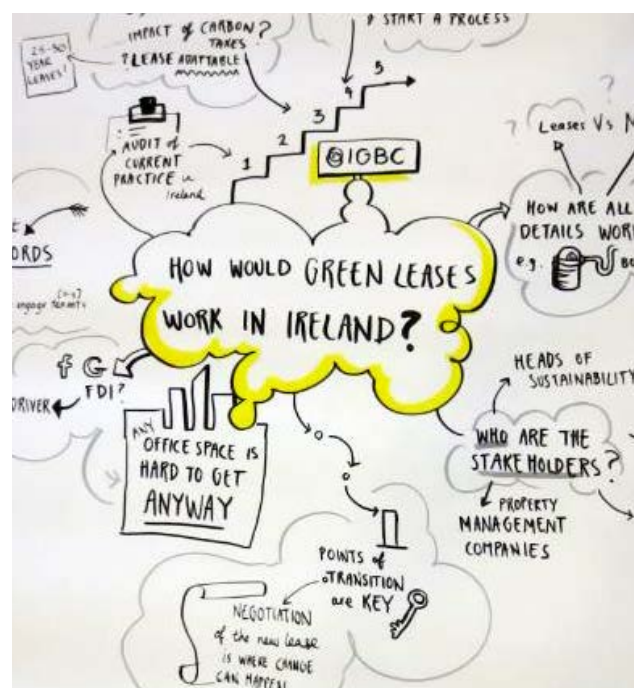 & START A PROCESS
IMPACT of CARBON
TAXES ?
? LEASE ADAPTABLE
25-30
YEAR
LEASES!
1 2 3 4 5
@IGBC
AUDIT of
CURRENT
PRACTICE in
Ireland
Leases Vs
HOW ARE ALL
DETAILS
e.g.
engage tenants
HOW WOULD GREEN LEASES
WORK IN IRELAND?
f G
FDI?
DRIVER
ANY
OFFICE SPACE IS
HARD TO GET
ANYWAY
HEADS OF
SUSTAINABILITY
WHO ARE THE
STAKEHOLDERS?
PROPERTY
MANAGEMENT
COMPANIES
POINTS of
TRANSITION
are KEY
NEGOTIATION
of the new lease
IS WHERE CHANGE
CAN HAPPEN